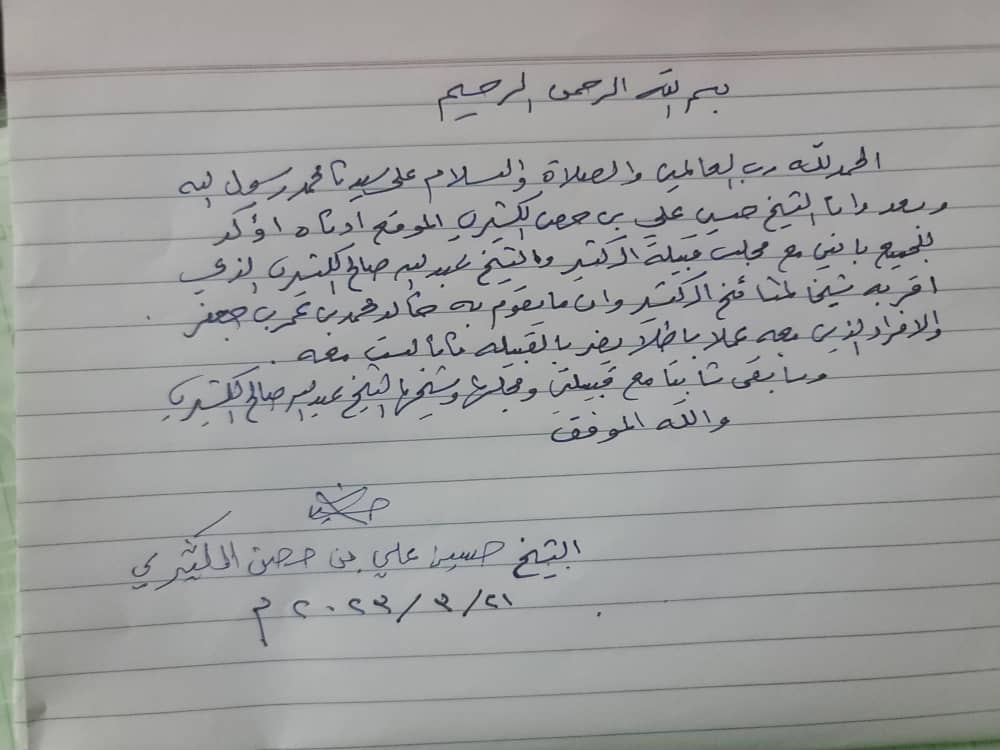 بسم الله الرحمن الرحيم
الحمد لله رب العالمين والصلاة والسلام على سيدنا محمد رسول الله
وبعد وانا الشيخ حسين علي بن حصن الكثيري الموقع ادناه اؤكد
للجميع بانني مع مجلس قبيلة ال كثير والشيخ عبدالله صالح الكثيري الذي
اقر به شيخا لمشائخ ال كثير وان ما يقوم به خالد محمد بن عمر بن جعفر
والافراد الذين معه عملا باطلا يضر بالقبيلة لست معه .
وسأبقى ثابتا مع قبيلتي ومجلسها وشيخها الشيخ عبدالله صالح الكثيري
والله الموفق
الشيخ حسين علي بن حصن الكثيري
٢١/٣/٢٠٢٣ م